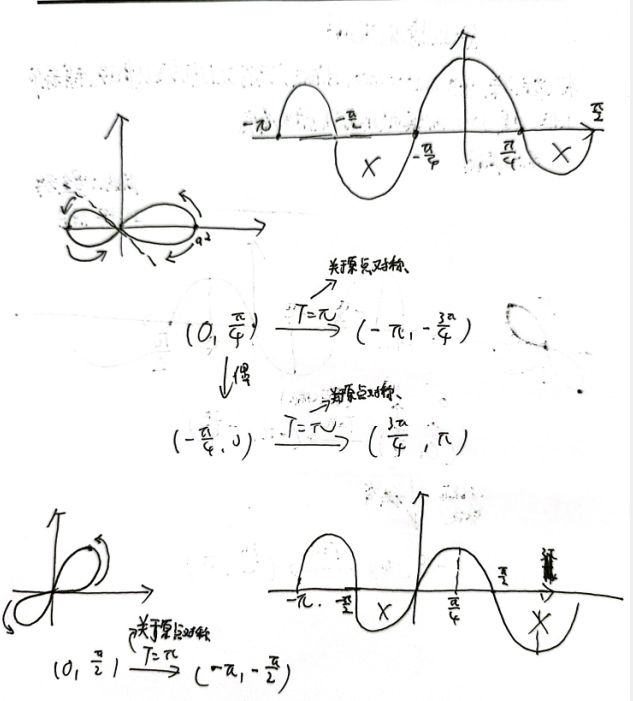 -π
-π/2
-π/4
π/4
π/2
X
X
a²
关于原点对称、
(0, π/4) T=π (-π, -3π/4)
偶
关于原点对称、
(-π/4, 0) T=π (3π/4, π)
-π
-π/2
X
π/4
π/2
X
关于原点对称
(0, π/2) T=π (-π, -π/2)